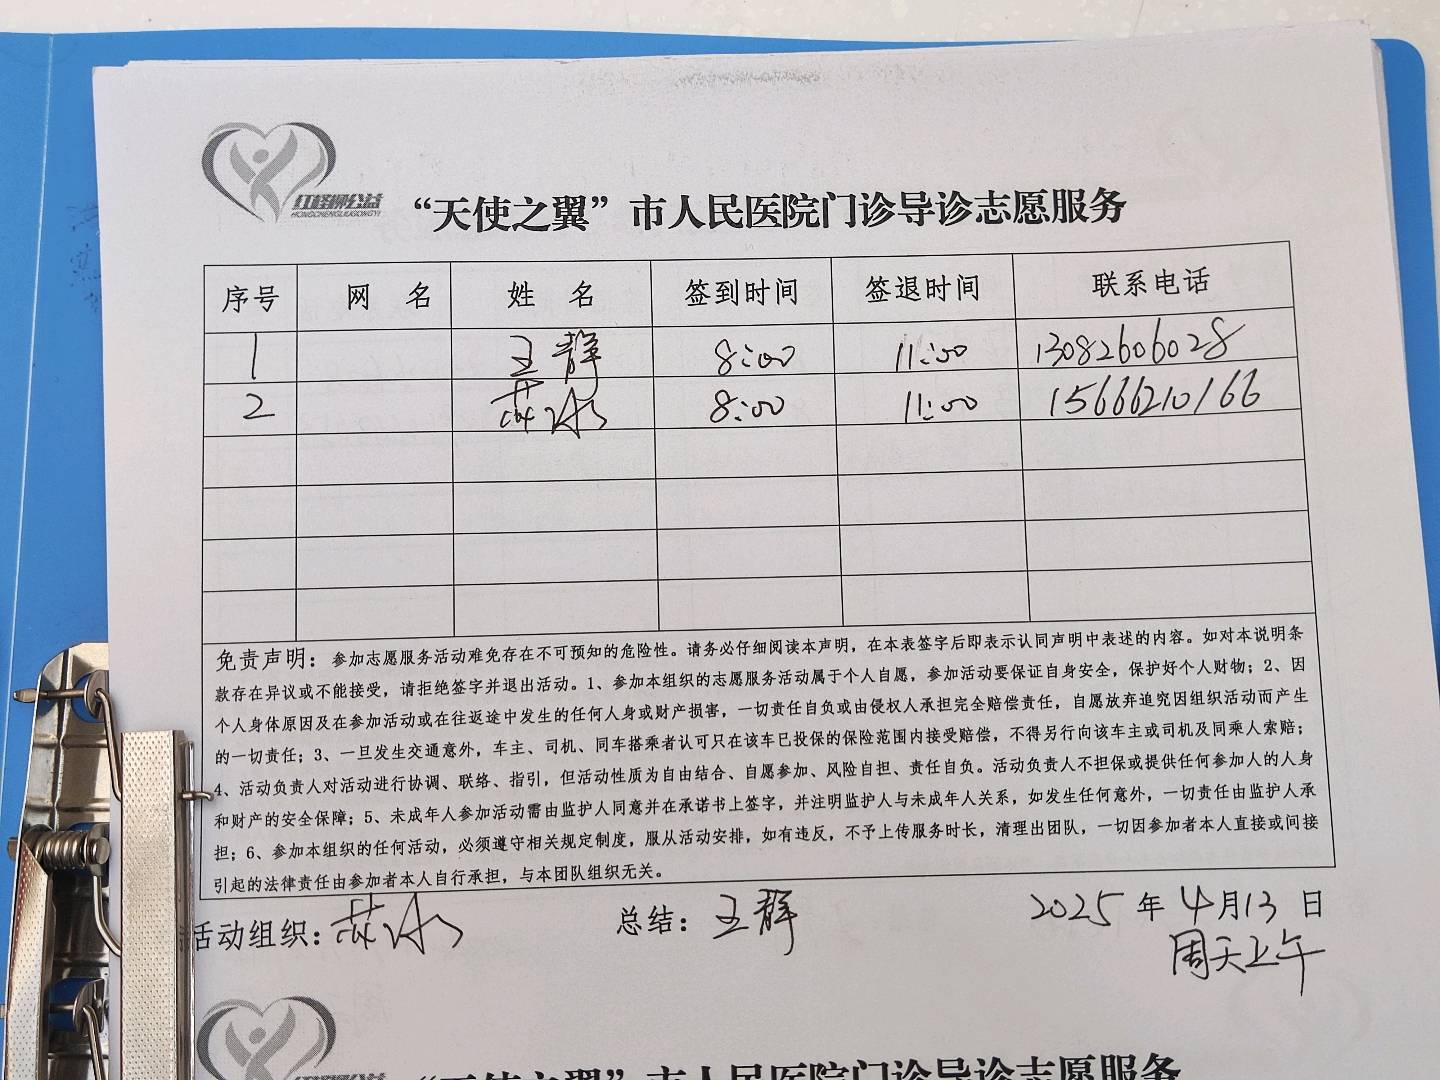 红柽柳公益
HONGCHENGLIUGONGYI
“天使之翼”市人民医院门诊导诊志愿服务
序号 网 名 姓 名 签到时间 签退时间 联系电话
1 王静 8:00 11:00 13082606028
2 冰 8:00 11:00 15666210166
免责声明：参加志愿服务活动难免存在不可预知的危险性。请务必仔细阅读本声明，在本表签字后即表示认同声明中表述的内容。如对本说明条
款存在异议或不能接受，请拒绝签字并退出活动。1、参加本组织的志愿服务活动属于个人自愿，参加活动要保证自身安全，保护好个人财物；2、因
个人身体原因及在参加活动或在往返途中发生的任何人身或财产损害，一切责任自负或由侵权人承担完全赔偿责任，自愿放弃追究因组织活动而产生
的一切责任；3、一旦发生交通意外，车主、司机、同车搭乘者认可只在该车已投保的保险范围内接受赔偿，不得另行向该车主或司机及同乘人索赔；
4、活动负责人对活动进行协调、联络、指引，但活动性质为自由结合、自愿参加、风险自担、责任自负。活动负责人不担保或提供任何参加人的人身
和财产的安全保障；5、未成年人参加活动需由监护人同意并在承诺书上签字，并注明监护人与未成年人关系，如发生任何意外，一切责任由监护人承
担；6、参加本组织的任何活动，必须遵守相关规定制度，服从活动安排，如有违反，不予上传服务时长，清理出团队，一切因参加者本人直接或间接
引起的法律责任由参加者本人自行承担，与本团队组织无关。
活动组织：冰 总结：王静 2025年4月13日
周天上午
红柽柳公益
“天使之翼”市人民医院门诊导诊志愿服务